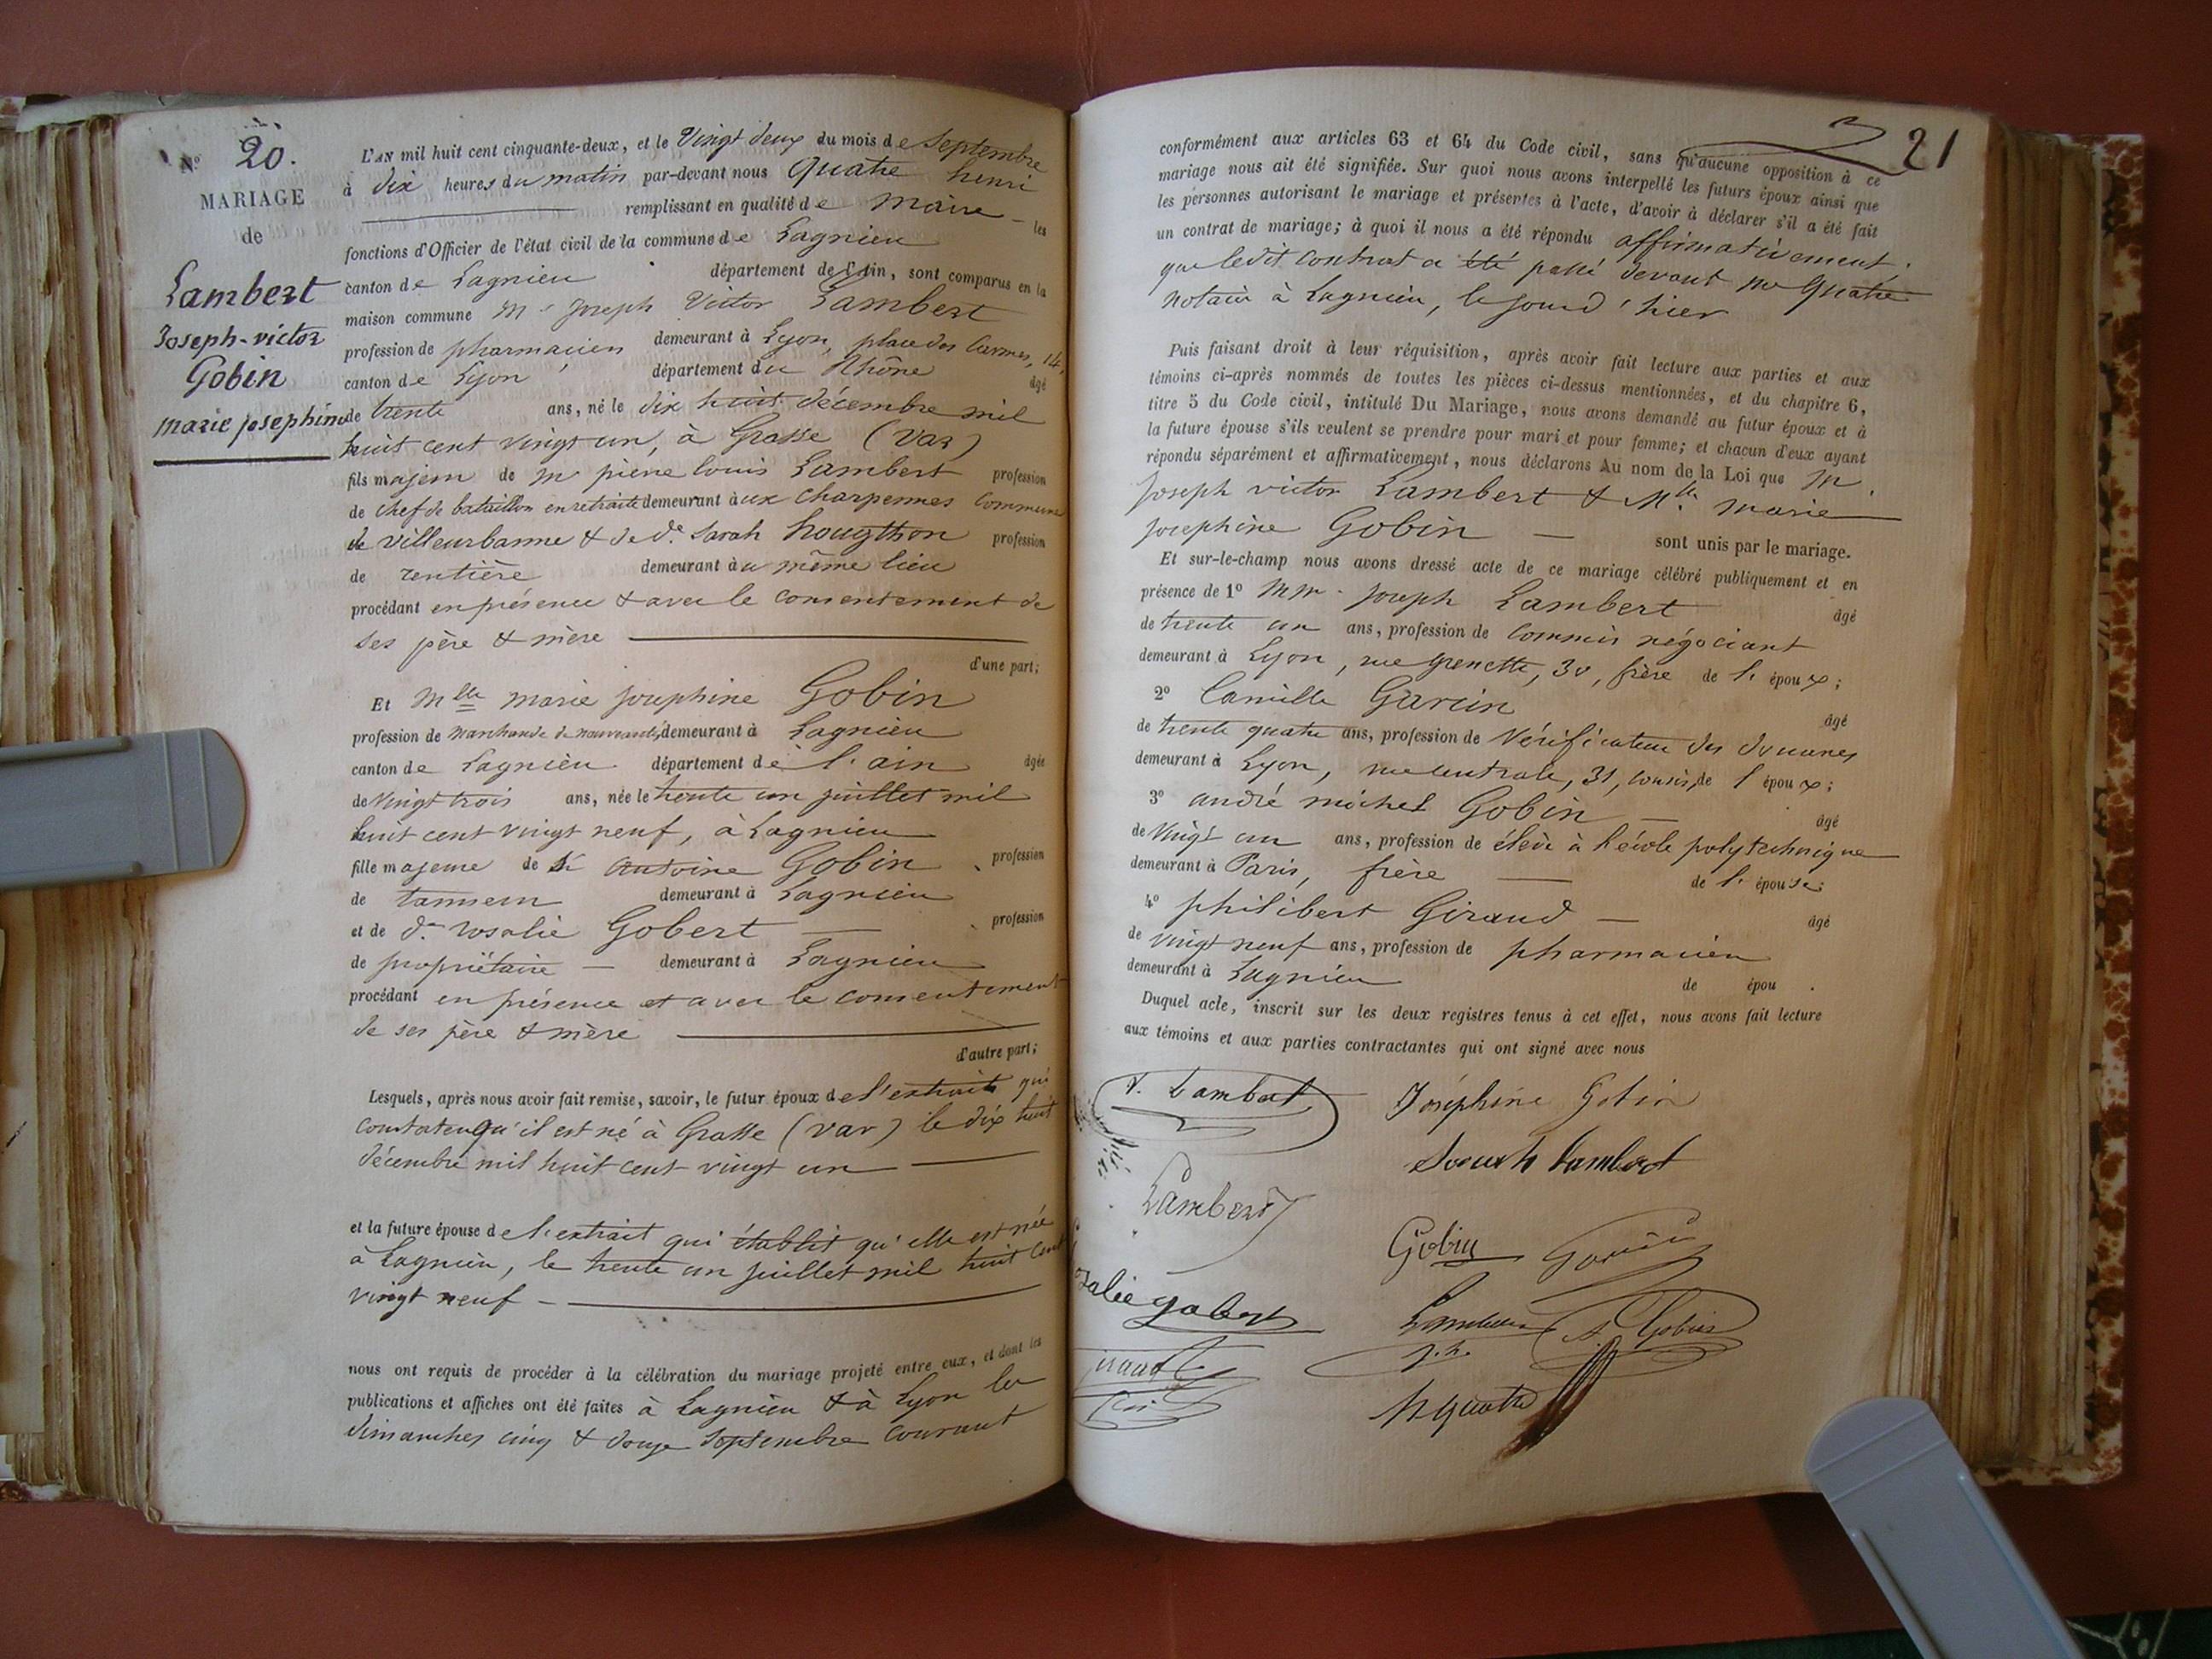 N° 20.
MARIAGE
de
Lambert
Joseph-victor
Gobin
marie josephine
L'AN mil huit cent cinquante-deux, et le Vingt deux du mois de Septembre
à dix heures du matin par-devant nous Quatre henri
remplissant en qualité de maire les
fonctions d'Officier de l'état civil de la commune de Lagnieu
canton de Lagnieu département de l'Ain, sont comparus en la
maison commune Mr Joseph Victor Lambert
profession de pharmacien demeurant à Lyon, place des Carmes, 14,
canton de Lyon département du Rhône âgé
de trente ans, né le dix huit décembre mil
huit cent vingt un, à Grasse (Var)
fils majeur de Mr pierre louis Lambert profession
de chef de bataillon en retraite demeurant à ux Charpennes commune
de villeurbanne & de de. Sarah hougthon profession
de rentière demeurant à u même lieu
procédant en présence & avec le consentement de
ses père & mère
d'une part;
Et Mlle marie josephine Gobin
profession de marchande de nouveautés, demeurant à Lagnieu
canton de Lagnieu département de l'ain âgée
de vingt trois ans, née le trente un juillet mil
huit cent vingt neuf, à Lagnieu
fille majeure de Sr antoine Gobin profession
de tanneur demeurant à Lagnieu
et de de. rosalie Gobert profession
de propriétaire demeurant à Lagnieu
procédant en présence et avec le consentement
de ses père & mère
d'autre part;
Lesquels, après nous avoir fait remise, savoir, le futur époux de l'extrait qui
constate qu'il est né à Grasse (var) le dix huit
décembre mil huit cent vingt un
et la future épouse de l'extrait qui établit qu'elle est née
à Lagnieu, le trente un juillet mil huit cent
vingt neuf
nous ont requis de procéder à la célébration du mariage projeté entre eux, et dont les
publications et affiches ont été faites à Lagnieu & à Lyon les
dimanches cinq & douze Septembre courant
21
conformément aux articles 63 et 64 du Code civil, sans qu'aucune opposition à ce
mariage nous ait été signifiée. Sur quoi nous avons interpellé les futurs époux ainsi que
les personnes autorisant le mariage et présentes à l'acte, d'avoir à déclarer s'il a été fait
un contrat de mariage; à quoi il nous a été répondu affirmativement,
que ledit contrat a été passé devant Me Quatre
notaire à Lagnieu, le jour d'hier
Puis faisant droit à leur réquisition, après avoir fait lecture aux parties et aux
témoins ci-après nommés de toutes les pièces ci-dessus mentionnées, et du chapitre 6,
titre 5 du Code civil, intitulé Du Mariage, nous avons demandé au futur époux et à
la future épouse s'ils veulent se prendre pour mari et pour femme; et chacun d'eux ayant
répondu séparément et affirmativement, nous déclarons Au nom de la Loi que M.
Joseph victor Lambert & Mlle. marie
josephine Gobin sont unis par le mariage.
Et sur-le-champ nous avons dressé acte de ce mariage célébré publiquement et en
présence de 1° MM. Joseph Lambert âgé
de trente un ans, profession de commis négociant
demeurant à Lyon, rue grenette, 30, frère de l' époux;
2° Camille Garcin âgé
de trente quatre ans, profession de Vérificateur des douanes
demeurant à Lyon, rue centrale, 31, cousin, de l' époux;
3° andré michel Gobin âgé
de vingt un ans, profession de élève à l'école polytechnique
demeurant à Paris, frère de l' épouse;
4° philibert Giraud âgé
de vingt neuf ans, profession de pharmacien
demeurant à Lagnieu de épou .
Duquel acte, inscrit sur les deux registres tenus à cet effet, nous avons fait lecture
aux témoins et aux parties contractantes qui ont signé avec nous
V. Lambert Joséphine Gobin
Lambert
Lambert
Gobin
A. Gobin
h quatre